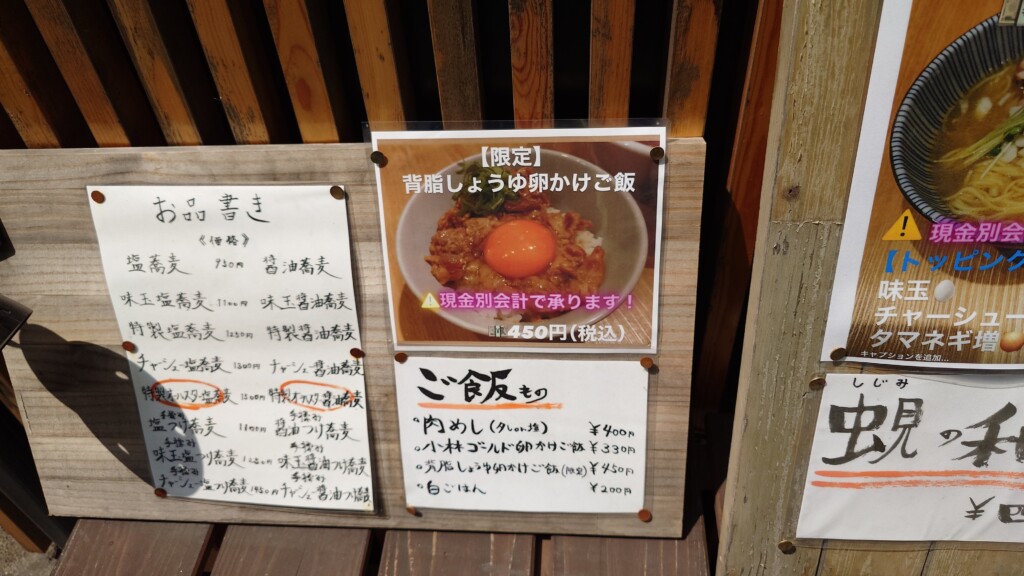 お品書き
塩蕎麦 950円 醤油蕎麦
味玉塩蕎麦 1100円 味玉醤油蕎麦
特製塩蕎麦 特製醤油蕎麦
チャーシュー塩蕎麦 チャーシュー醤油蕎麦
手揉み 手揉み
塩つけ蕎麦 醤油つけ蕎麦
味玉塩つけ蕎麦 味玉醤油つけ蕎麦
チャーシュー塩つけ蕎麦 チャーシュー醤油つけ蕎麦
【限定】
背脂しょうゆ卵かけご飯
⚠現金別会計で承ります!
450円(税込)
ご飯もの
肉めし ¥400円
小林ゴールド卵かけご飯 ¥330円
背脂しょうゆ卵かけご飯(限定) ¥450円
白ごはん ¥200円
⚠現金別会
【トッピング
味玉
チャーシュー
タマネギ増
キャプションを追加...
しじみ
蜆の